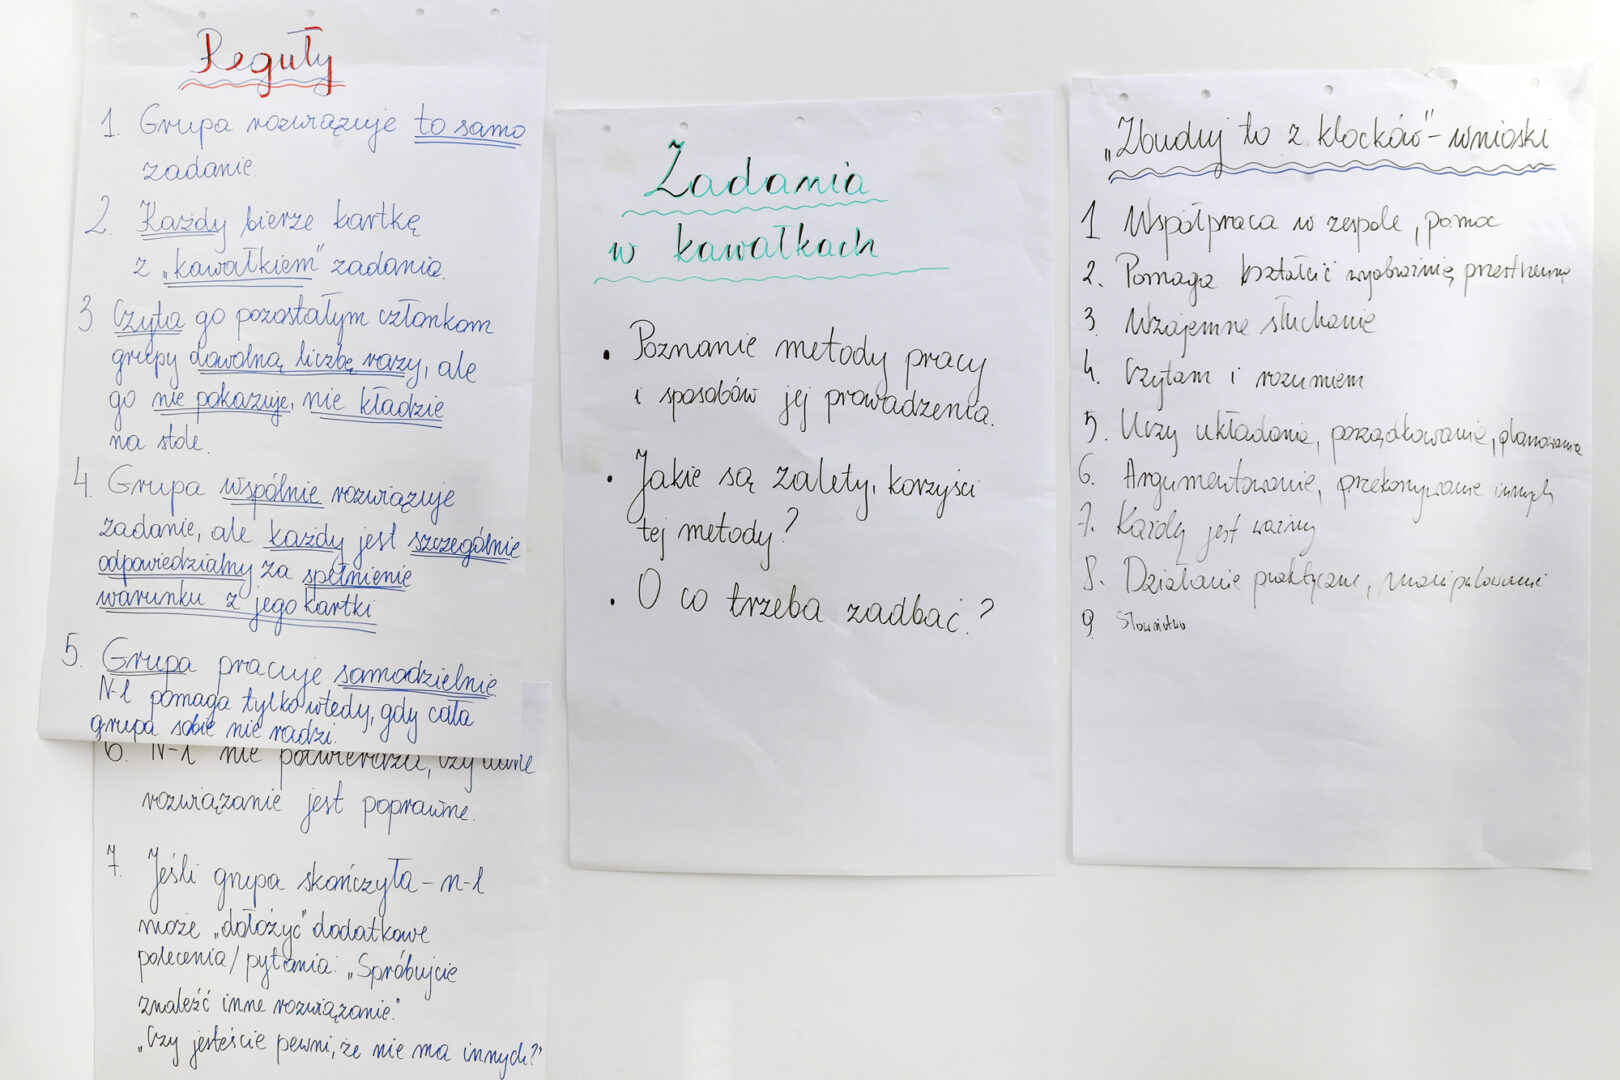 Reguły
1. Grupa rozwiązuje to samo
zadanie.
2. Każdy bierze kartkę
z „kawałkiem" zadania.
3. Czyta go pozostałym członkom
grupy dowolną liczbę razy, ale
go nie pokazuje, nie kładzie
na stole.
4. Grupa wspólnie rozwiązuje
zadanie, ale każdy jest szczególnie
odpowiedzialny za spełnienie
warunku z jego kartki
5. Grupa pracuje samodzielnie
N-l pomaga tylko wtedy, gdy cała
grupa sobie nie radzi.
6. N-l nie potwierdza, czy dane
rozwiązanie jest poprawne.
7. Jeśli grupa skończyła – n-l
może „dołożyć" dodatkowe
polecenia/pytania: „Spróbujcie
znaleźć inne rozwiązanie."
„Czy jesteście pewni, że nie ma innych?"
Zadania
w kawałkach
• Poznanie metody pracy
i sposobów jej prowadzenia.
• Jakie są zalety, korzyści
tej metody?
• O co trzeba zadbać?
„Zbuduj to z klocków" – wnioski
1 Współpraca w zespole, pomoc
2. Pomaga kształcić wyobraźnię przestrzenną
3. Wzajemne słuchanie
4. Czytam i rozumiem
5. Uczy układania, porządkowania, planowania
6. Argumentowanie, przekonywanie innych
7. Każdy jest ważny
8. Działanie praktyczne, manipulowanie
9 Słownictwo